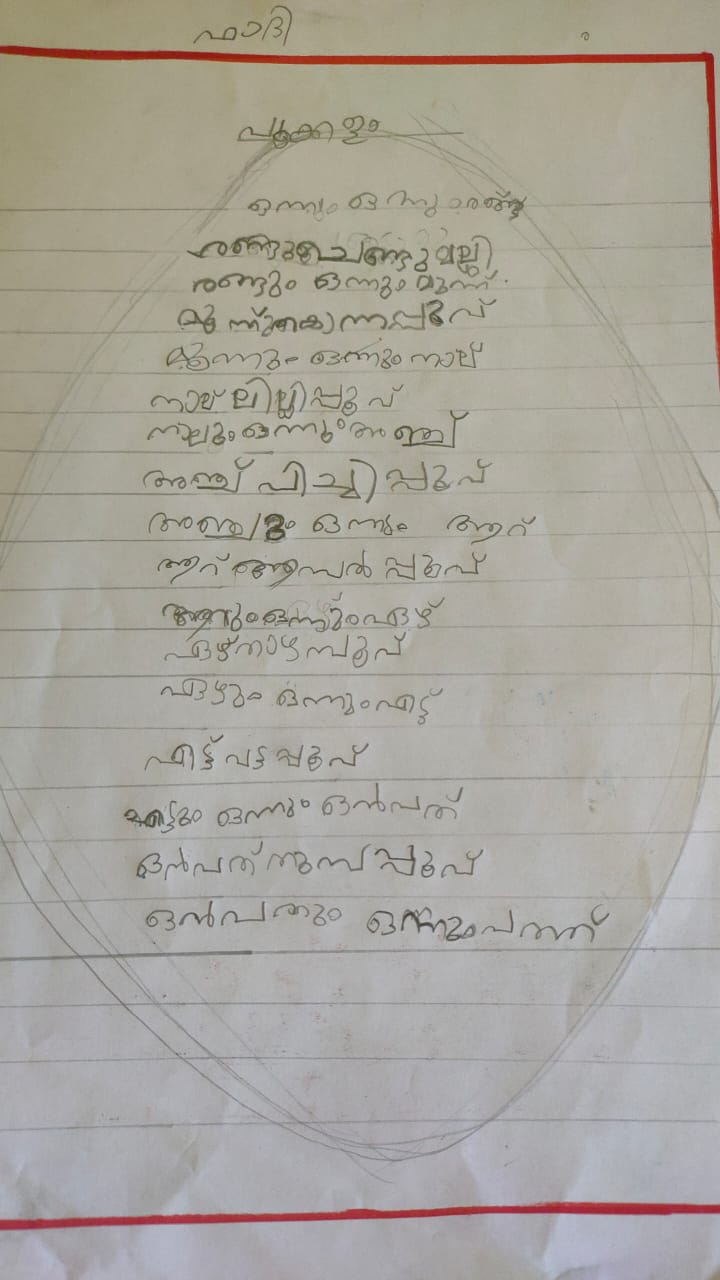 ഫാദി
പൂക്കളം
ഒന്നും ഒന്നും രണ്ട്
രണ്ടു ചെണ്ടുമല്ലി
രണ്ടും ഒന്നും മൂന്ന്
മൂന്ന് കൊന്നപ്പൂവ്
മൂന്നും ഒന്നും നാല്
നാല് ലില്ലിപ്പൂവ്
നാലും ഒന്നും അഞ്ച്
അഞ്ച് പിച്ചിപ്പൂവ്
അഞ്ചും ഒന്നും ആറ്
ആറ് ആമ്പൽപ്പൂവ്
ആറും ഒന്നും ഏഴ്
ഏഴ് താഴമ്പൂവ്
ഏഴും ഒന്നും എട്ട്
എട്ട് വട്ടപ്പൂവ്
എട്ടും ഒന്നും ഒൻപത്
ഒൻപത് തുമ്പപ്പൂവ്
ഒൻപതും ഒന്നും പത്ത്